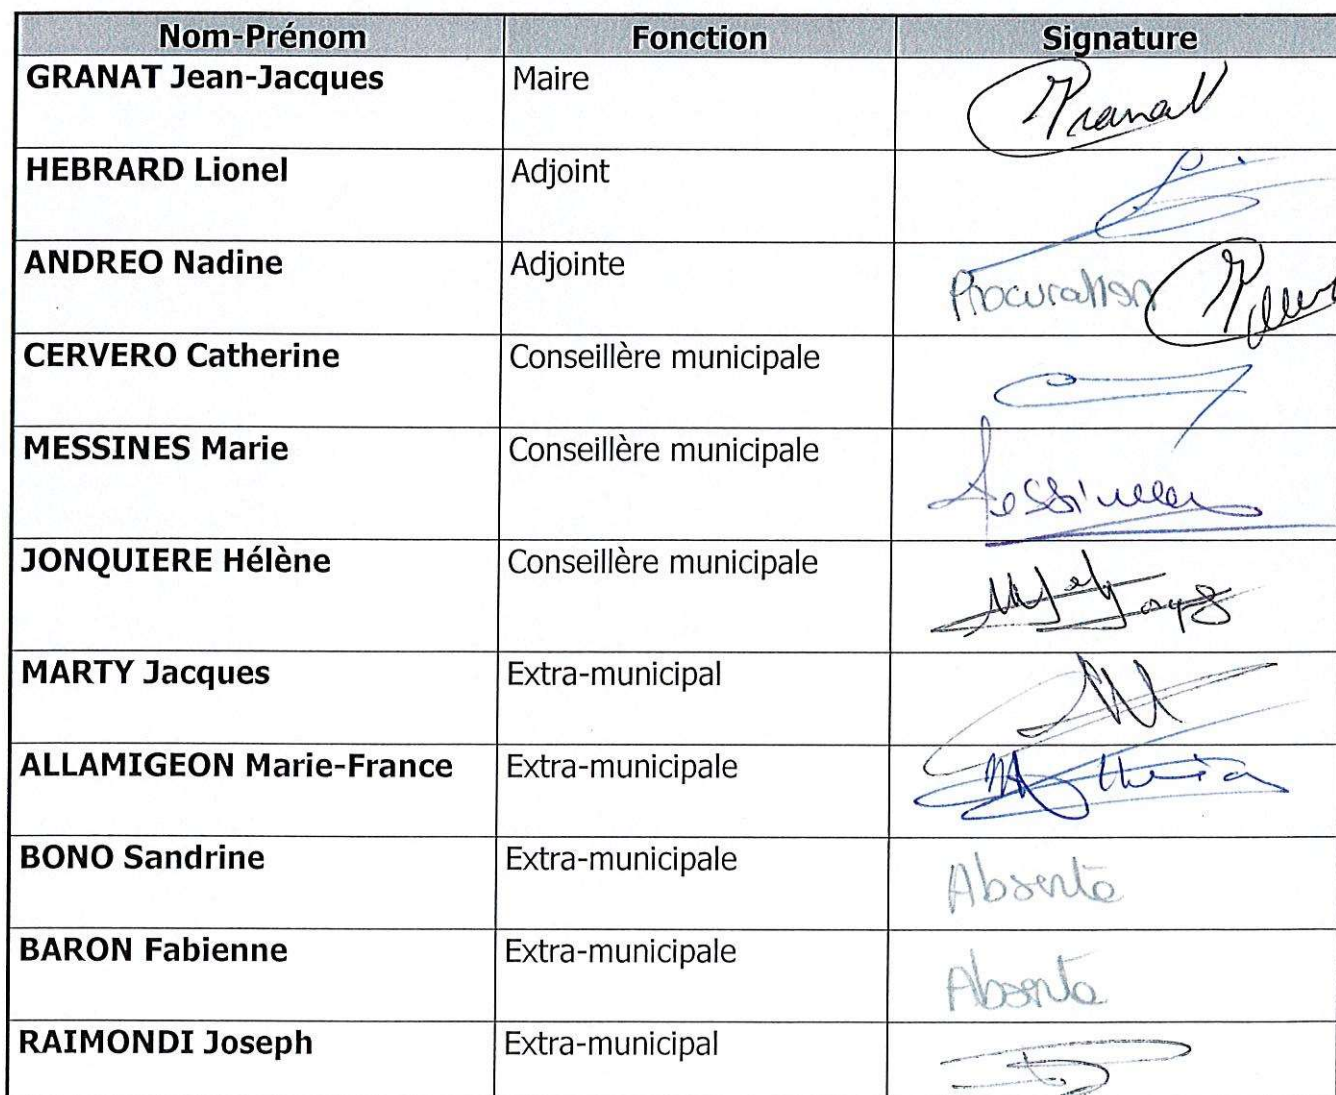 Nom-Prénom Fonction Signature
GRANAT Jean-Jacques Maire Granat
HEBRARD Lionel Adjoint
ANDREO Nadine Adjointe Procuration
CERVERO Catherine Conseillère municipale
MESSINES Marie Conseillère municipale
JONQUIERE Hélène Conseillère municipale
MARTY Jacques Extra-municipal
ALLAMIGEON Marie-France Extra-municipale
BONO Sandrine Extra-municipale Absente
BARON Fabienne Extra-municipale Absente
RAIMONDI Joseph Extra-municipal